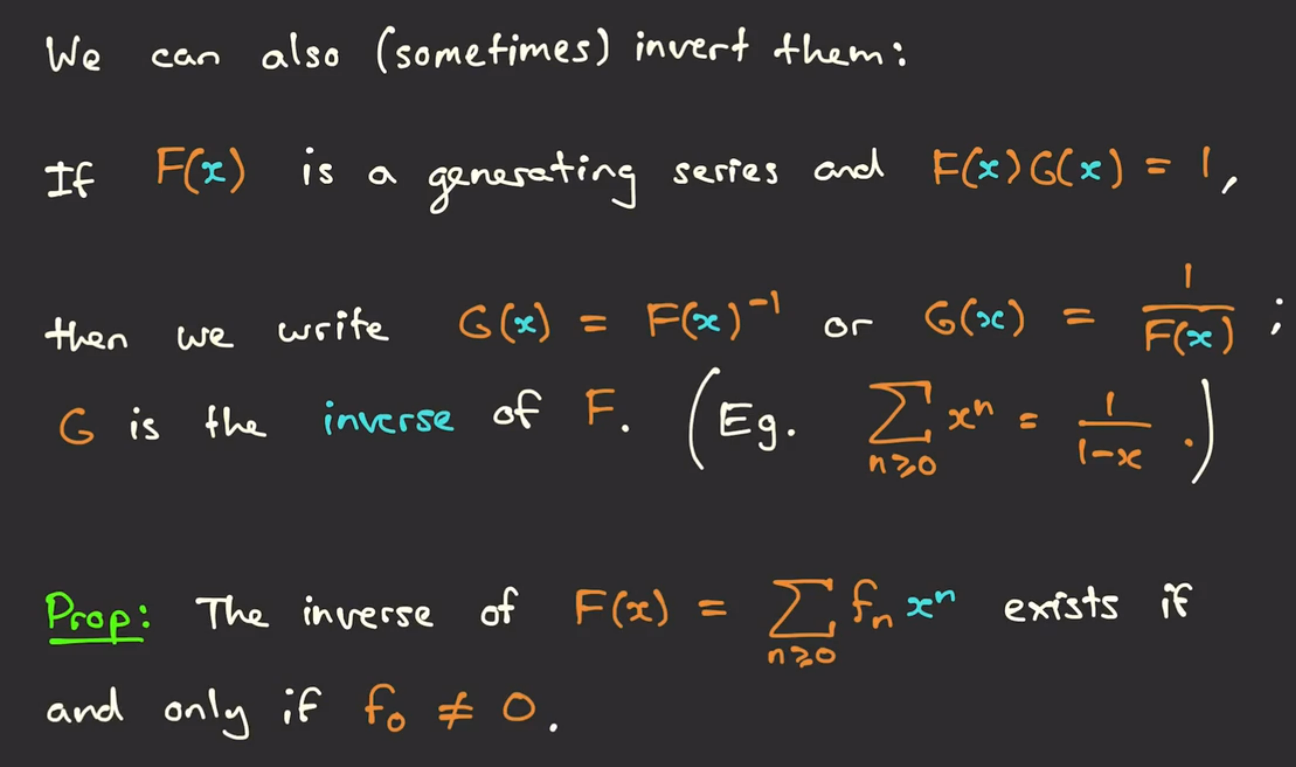 We can also (sometimes) invert them:
If F(x) is a generating series and F(x)G(x) = 1,
then we write G(x) = F(x)⁻¹ or G(x) = 1/F(x) ;
G is the inverse of F. (Eg. ∑_{n≥0} xⁿ = 1/(1-x) .)
Prop: The inverse of F(x) = ∑_{n≥0} fₙ xⁿ exists if
and only if f₀ ≠ 0.